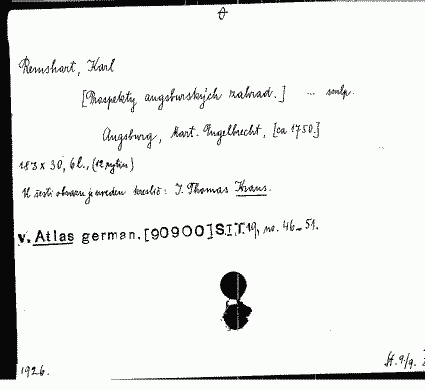 Remshart, Karl
[Prospekty augsburských zahrad.] ... sculp.
Augsburg, Mart. Engelbrecht, [ca 1750]
183 x 30, 6 l., (12 rytin)
U šesti obrazu je uveden kreslič: J. Thomas Kraus.
v. Atlas german. [90900] S.I.T. 19, no. 46-51.
1926.